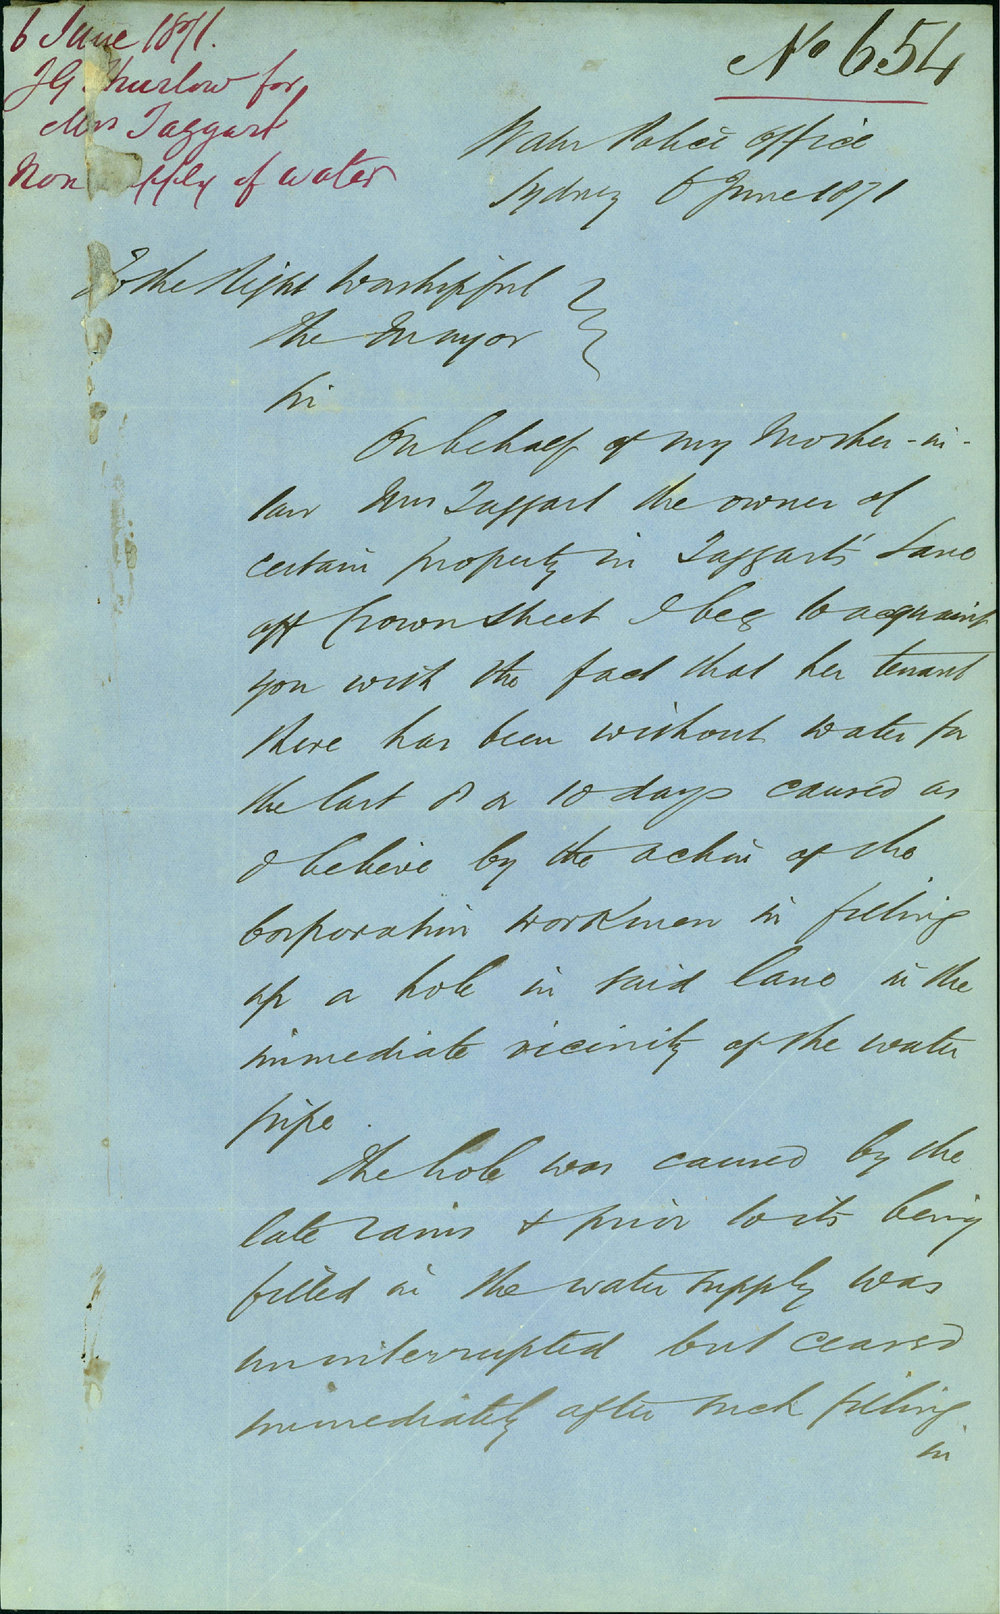 6 June 1871.
JG Thurlow for
Mrs Taggart
Non supply of water
No 654
Water Police Office
Sydney 6 June 1871
To the Right Worshipful
The Mayor
Sir
On behalf of my Mother-in-
law Mrs Taggart the owner of
certain property in Taggart's Lane
off Crown Street I beg to acquaint
you with the fact that her tenant
there has been without water for
the last 8 or 10 days caused as
I believe by the action of the
Corporation workmen in filling
up a hole in said lane in the
immediate vicinity of the water
pipe.
The hole was caused by the
late rains & prior to its being
filled in the water supply was
uninterrupted but ceased
immediately after such filling
in